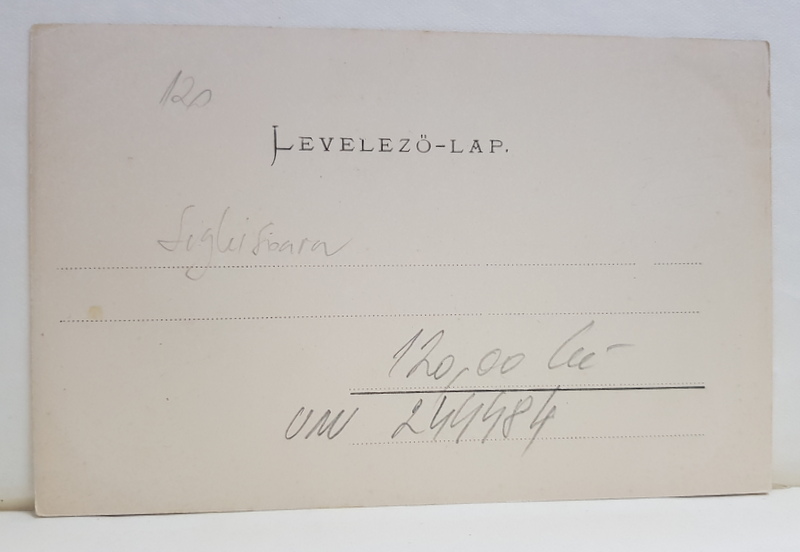 120
LEVELEZŐ-LAP.
Sighisoara
120,00 lei
UNV 244484